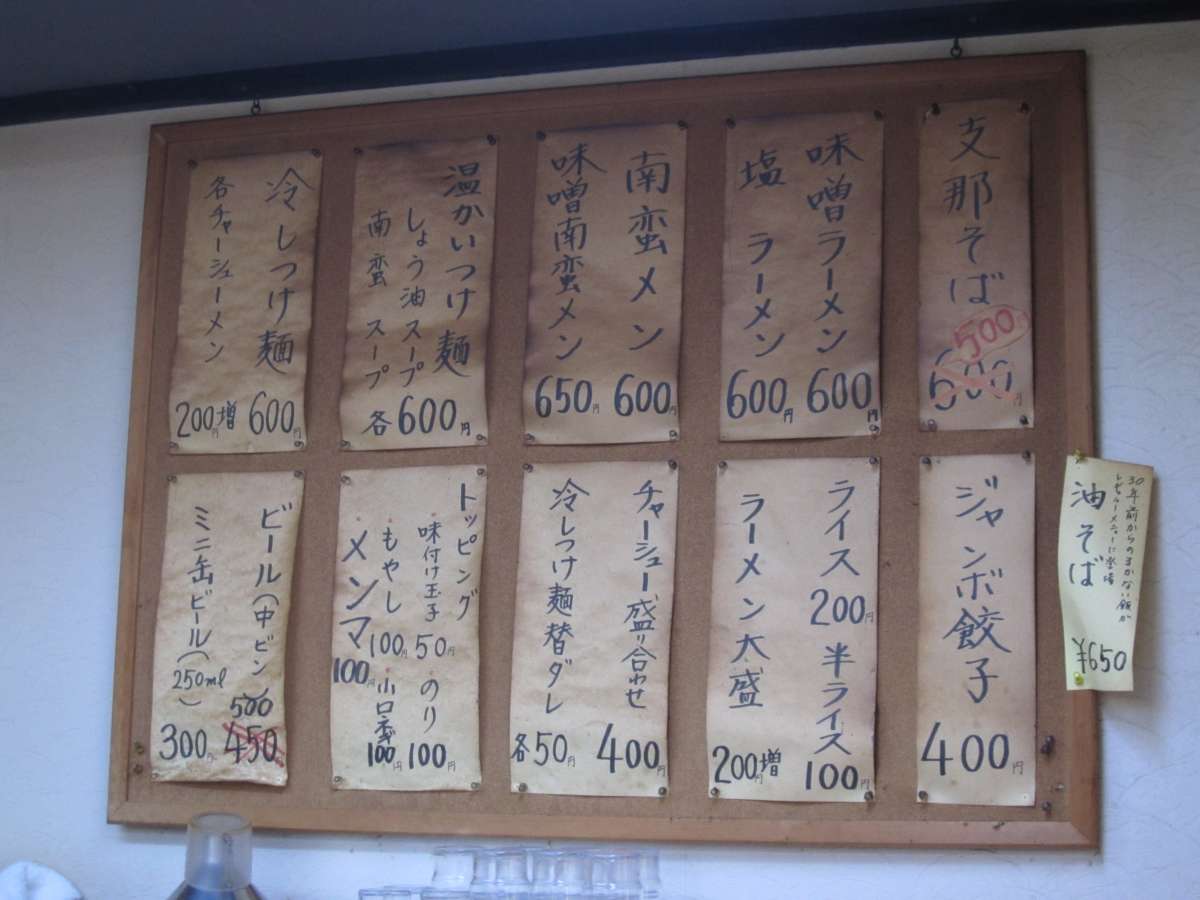 支那そば
500
600
味噌ラーメン 600円
塩ラーメン 600円
南蛮メン 600円
味噌南蛮メン 650円
温かいつけ麺
しょう油スープ
南蛮スープ
各600円
冷しつけ麺 600円
各チャーシューメン 200円増
油そば ¥650
30年前からの
ジャンボ餃子 400円
ライス 200円 半ライス 100円
ラーメン大盛 200円増
チャーシュー盛り合わせ 400円
冷しつけ麺替ダレ 各50円
トッピング
・味付け玉子 50円 ・のり 100円
・もやし 100円
・メンマ 100円
100円
ビール(中ビン)
500
450
ミニ缶ビール(250ml) 300円